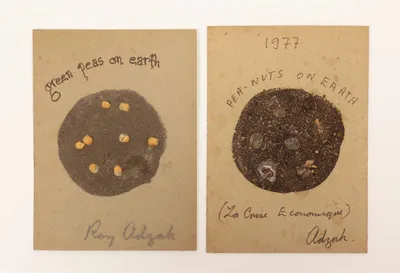 green peas on earth
Roy Adzak
1977
PEA-NUTS ON EARTH
(La Crise Economique)
Adzak.